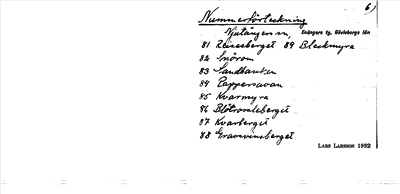 6)
Nummerförteckning
Njutångers sn, Enångers tg, Gävleborgs län
81 Reiseberget 89 Bleckmyra
82 Snörom
83 Sandbanken
84 Pappersavan
85 Kvarmyra
86 Blötrosselberget
87 Kvarberget
88 Gravsvinsberget
LARS LARSSON 1932